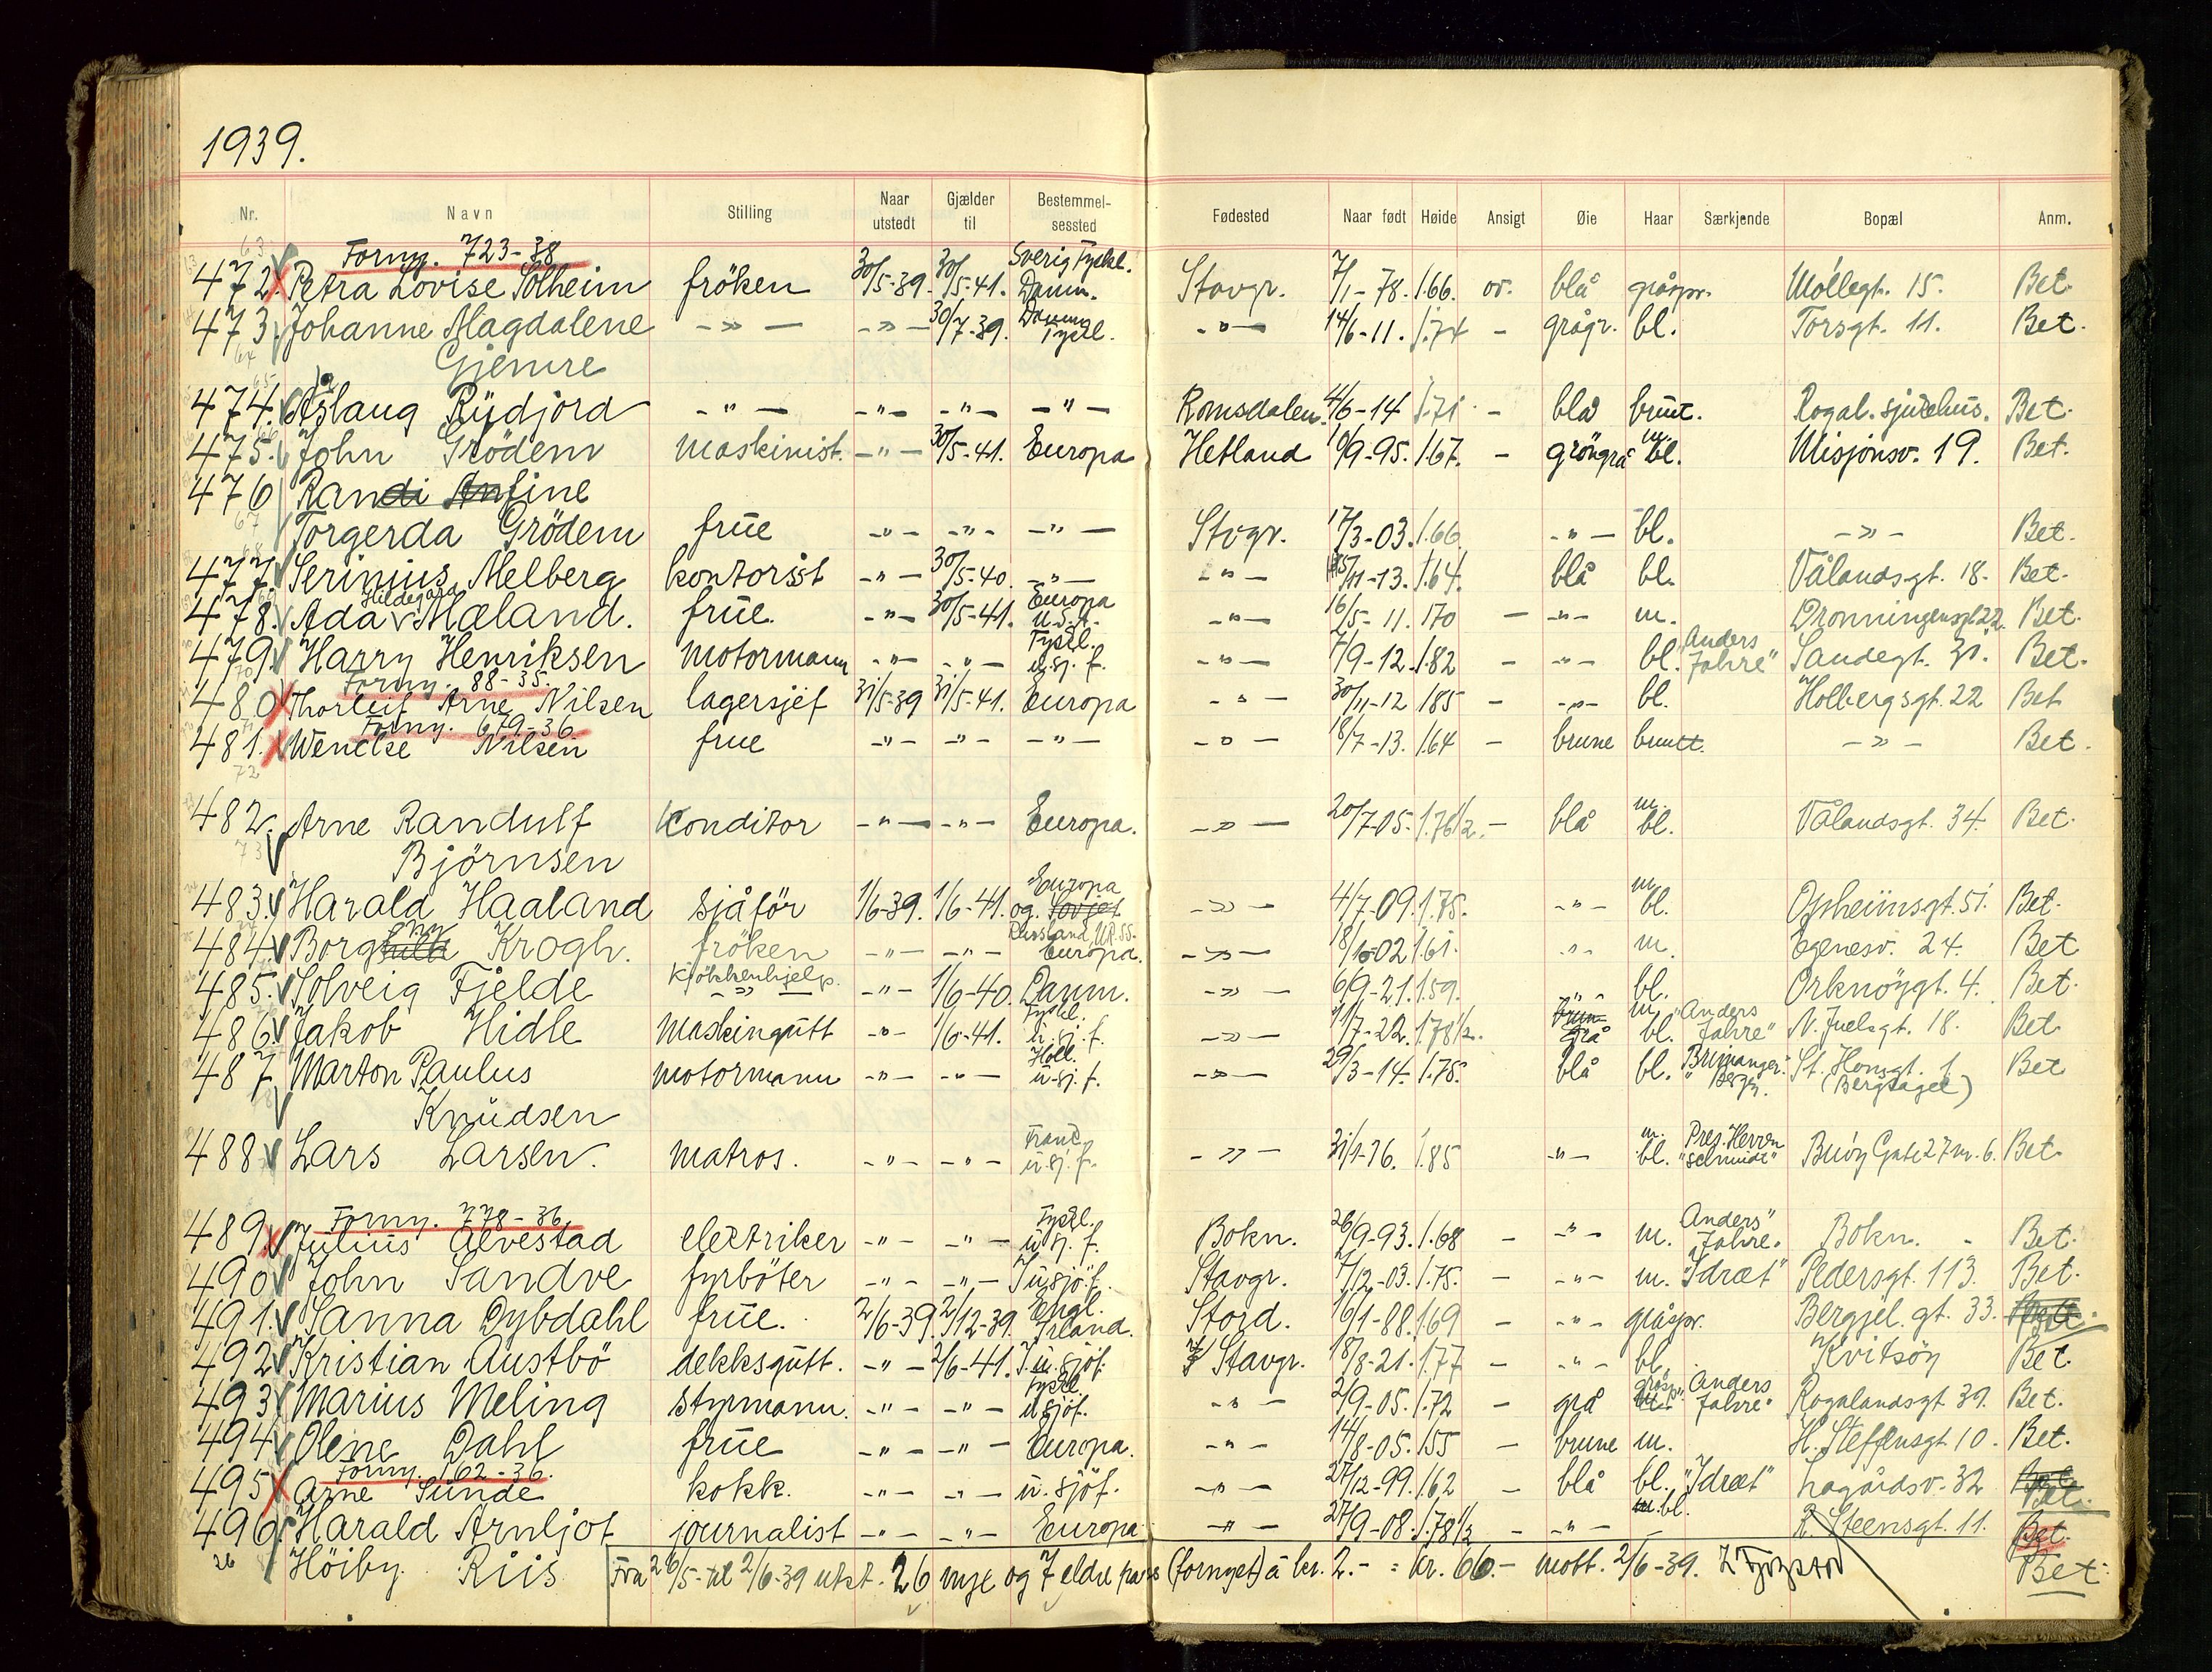 1939.
Nr. Navn Stilling Naar utstedt Gjælder til Bestemmelsessted Fødested Naar født Høide Ansigt Øie Haar Særkjende Bopæl Anm.
Forny. 723-38 Sverig Tyskl.
472. Petra Lovise Solheim fröken 30/5-39. 30/5-41. Danm. Stavgr. 7/1-78. 1.66. ov. blå gråspr. Möllegt. 15. Bet.
473. Johanne Magdalene -"- -"- 30/7-39. Danm. Tyskl. -"- 14/6-11. 1.74 - grågr. bl. Torsgt. 11. Bet.
Gjemre
474. Åslaug Rydjord -"- -"- -"- -"- Romsdalen. 4/6-14 1.71 - blå brunt. Rogal. sjukehus. Bet.
475. John Grödem maskinist. -"- 30/5-41. Europa Hetland 10/9-95. 1.67. - gröngrå m. bl. Misjonsv. 19. Bet.
476 Randi Anfine
Torgerda Grödem frue -"- -"- -"- Stvgr. 17/3-03. 1.66 -"- bl. -"- Bet.
477. Serinius Melberg kontorist -"- 30/5-40. -"- -"- 15/11-13. 1.64. blå bl. Vålandsgt. 18. Bet.
478. Ada Hildegard Mæland. frue. -"- 30/5-41. Europa U.S.A. -"- 16/5-11. 170 - -"- m. Dronningensgt 22. Bet.
479. Harry Henriksen motormann -"- -"- Tyskl. u.sj.f. -"- 7/9-12. 1.82 - -"- bl. "Anders Jahre" Sandegt. 31. Bet.
Forny. 88-35.
480 Thorleif Arne Nilsen lagersjef 31/5-39 31/5-41. Europa -"- 30/11-12 185 - -"- bl. Holbergsgt. 22 Bet
Forny. 679-36
481. Wenche Nilsen frue -"- -"- -"- -"- 18/7-13. 1.64 - brune brunt. -"- Bet.
482. Arne Randulf Konditor -"- -"- Europa. -"- 20/7-05. 1.76 1/2. - blå m. bl. Vålandsgt. 34. Bet.
Björnsen
483. Harald Haaland sjåför 1/6-39. 1/6-41. Europa og. Sovjet -"- 4/7-09. 1.75. -"- m. bl. Opheimsgt. 51. Bet.
484. Borghild Krogh. fröken -"- -"- Russland, U.R.SS. Europa. -"- 18/10-02 1.61. -"- m. Egenesv. 24. Bet
485. Solveig Fjelde Kjökkenhjelp. -"- -"- 1/6-40. Danm. -"- 6/9-21. 1.59. -"- bl. Orknöygt. 4. Bet.
486 Jakob Hidle maskingutt -"- 1/6-41. Tyskl. u.sj.f. -"- 1/7-22. 1.78 1/2. brun grå m. bl. "Anders Jahre" N. Juelsgt. 18. Bet
487 Marton Paulus motormann -"- -"- Holl. u.sj.f. -"- 29/3-14. 1.75. blå bl. "Brimanger" Berg. St. Hansgt. 1 (Bergsagel) Bet
Knudsen
488 Lars Larsen. matros. -"- -"- Frank u.sj.f. -"- 31/1-76. 1.85 -"- m. bl. "Pres. Herren schmidt" Buöy Gate 27 nr. 6. Bet.
Forny. 778-36.
489. Julius Alvestad elektriker -"- -"- Tyskl. u.sj.f. Bokn. 26/9-93. 1.68 - -"- m. "Anders" Jahre. Bokn. - Bet.
490 John Sandve fyrböter -"- -"- I u.sjö.f. Stavgr. 7/12-03. 1.75. - -"- m. "Idræt" Pedersgt. 113. Bet.
491. Sanna Dybdahl frue. 2/6-39. 2/12-39. Engl. Irland. Stord. 16/1-88. 169 - -"- gråspr. Bergjel. gt. 33. Bet.
492 Kristian Austbö dekksgutt. -"- 2/6-41. I.u.sjöf. Stavgr. 18/8-21. 1.77 - -"- bl. Kvitsöy Bet.
493 Marius Meling styrmann. -"- -"- Tyskl. u.sjöf. -"- 2/9-05. 1.72 - grå gråsp. "Anders Jahre" Rogalandsgt 39. Bet.
494 Olene Dahl frue -"- -"- Europa. -"- 14/8-05. 155 - brune m. H. Steffensgt. 10. Bet.
Forny. 162-36.
495 Arne Sunde kokk. -"- -"- u.sjöf. -"- 27/12-99. 1.62 - blå bl. "Idræt" Lagårdsv. 32 Bet.
496. Harald Arnljot journalist -"- -"- Europa -"- 27/9-08. 1.78 1/2 - -"- m. bl. R. Steensgt. 11. Bet.
26 Höiby Riis Fra 26/5- til 2/6-39 utst. 26 nye og 7 eldre pass (fornyet) à kr. 2.- = kr. 66.- mott. 2/6-39. Bet.